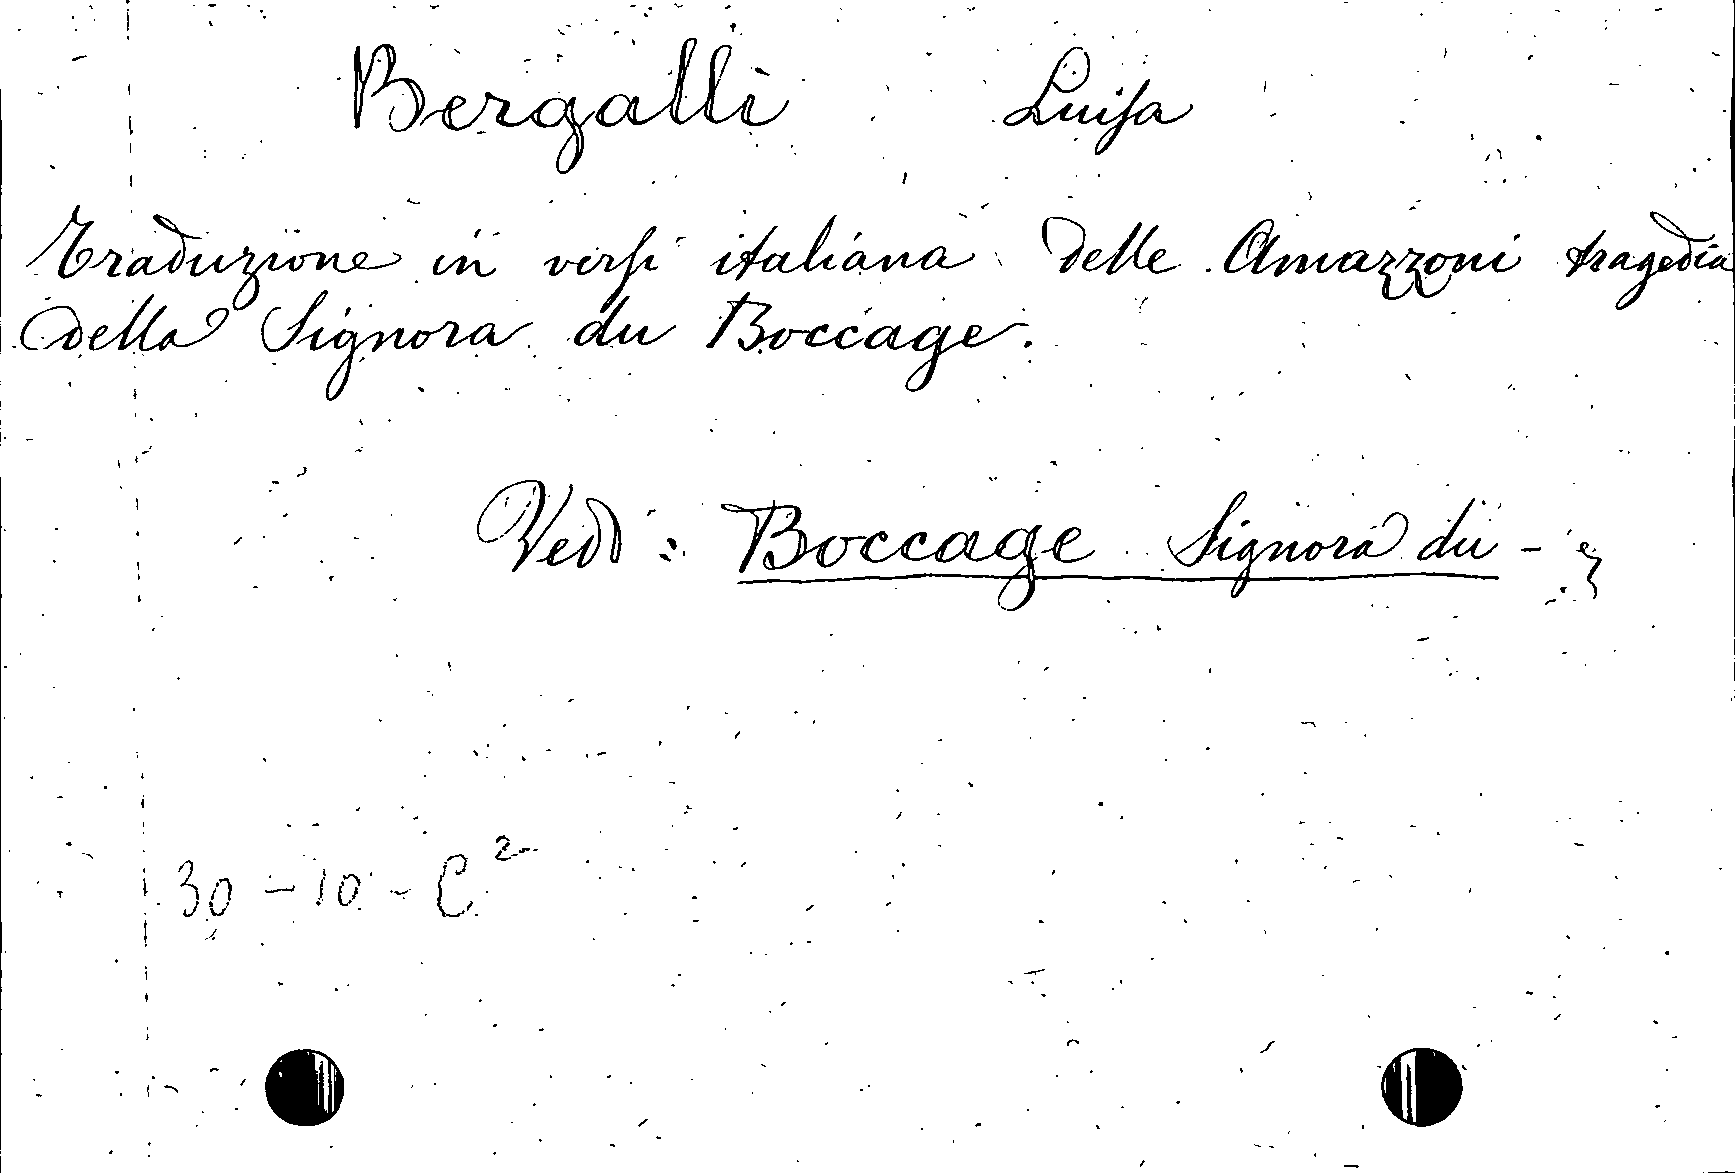 Bergalli Luisa
Traduzione in versi italiana delle Amazzoni tragedia
della Signora du Boccage.
Vedi: Boccage Signora du -
30 - 10 - C²